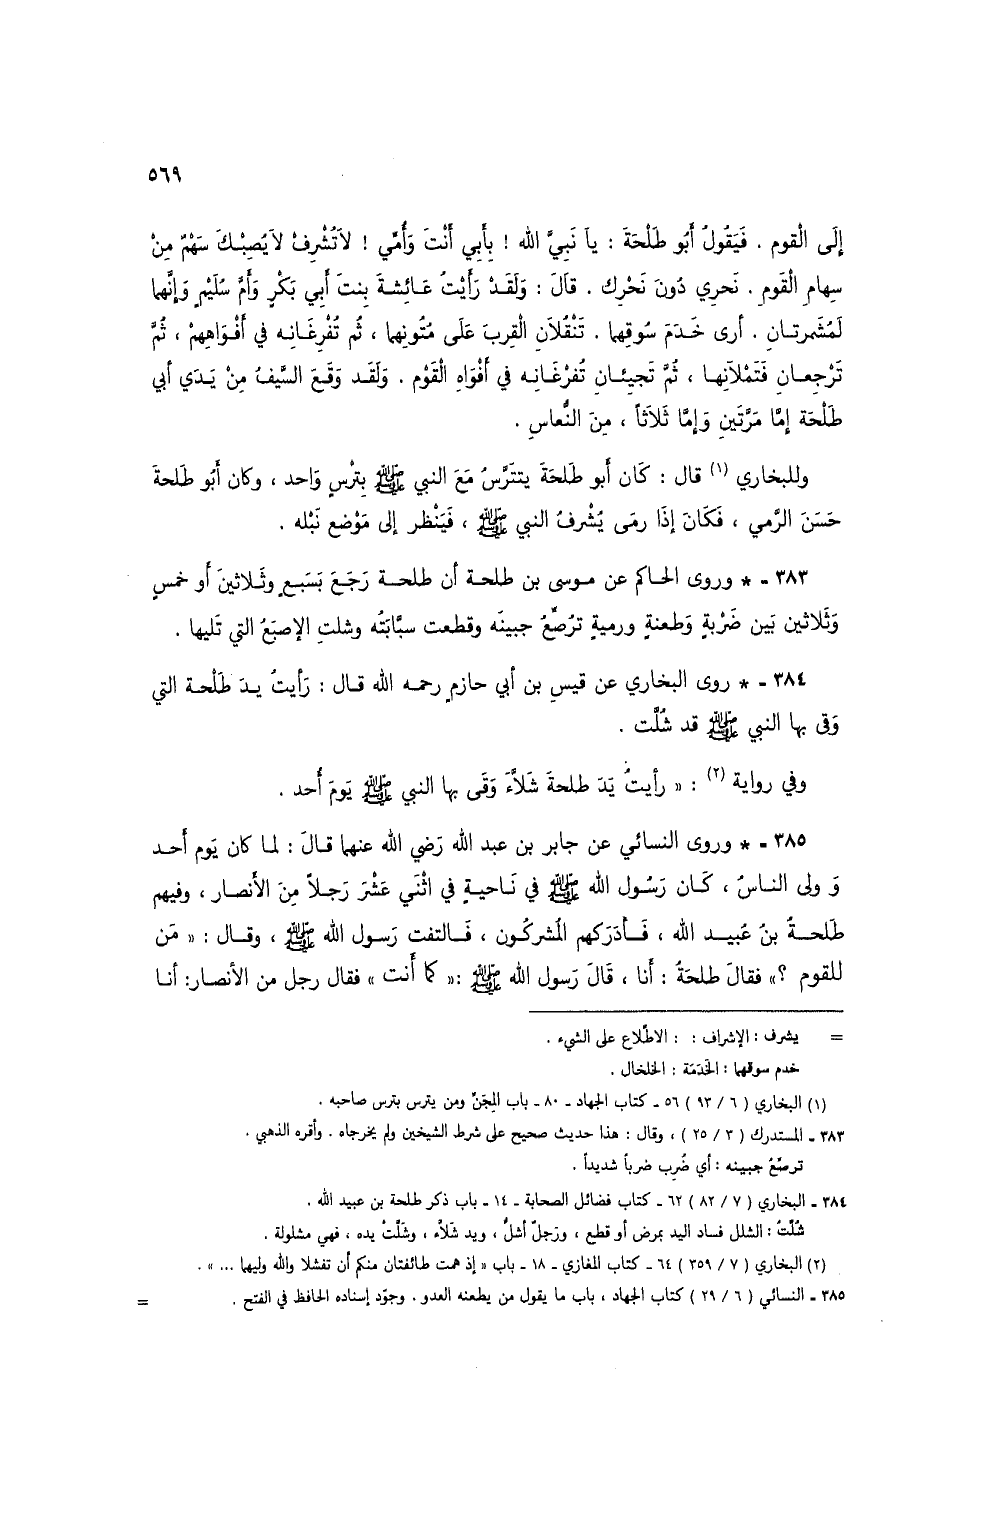 ٥٦٩
إِلَى الْقوم . فَيَقُولُ أَبُو طَلْحَةَ : يا نَبِيَّ الله ! بِأبي أَنْتَ وَأُمِّي ! لاَتُشْرِفْ لاَيُصِبْكَ سَهْمٌ مِنْ
سِهام الْقَومِ . نَحرِي دُونَ نَحْرِك . قالَ : وَلَقَدْ رَأَيْتُ عَائِشةَ بِنتَ أبي بَكْرٍ وَأُمَّ سُلَيْمٍ وَإنَّهما
لَمُشَمرتـانِ . أرى خَدَمَ سُوقِهما . تَنْقُلاَنِ الْقِربَ عَلَى مُتُونِهما ، ثُم تُفْرِغَانِه في أَفْوَاهِهِمْ ، ثُمَّ
تَرْجِعـانِ فَتَمْلآنِهـا ، ثُمَّ تَجيئـانِ تُفرْغَانِه في أفْوَاهِ الْقَوْم . وَلَقَد وَقَعَ السَّيفُ مِنْ يَدَي أبي
طَلْحَة إمَّا مَرَّتَينِ وَإمَّا ثَلاَثاً ، مِنَ النُّعاسِ .
وللبخاري (١) قال : كَان أبو طَلحَةَ يتتَرَّسُ مَعَ النبي ﷺ بِتُرْسٍ وَاحد ، وكان أَبُو طَلحةَ
حَسَنَ الرَّمي ، فَكَانَ إذَا رمَى يُشْرفُ النبي ﷺ ، فَيَنْظر إلى مَوْضع نَبْله .
٣٨٣ - * وروى الحـاكم عن مـوسى بن طلحـة أن طلحـة رَجَعَ بَسَبـعٍ وثَـلاثينَ أو خمسٍ
وَثَلاثين بَين ضَرْبةٍ وَطعنةٍ ورميةٍ ترُصَّعُ جبينَه وقطعت سبَّابَتُه وشلتِ الإصبَعُ التي تَليها .
٣٨٤ - * روى البخاري عن قيسِ بن أبي حازمٍ رحمـه الله قـال : رَأيتُ يـدَ طَلْحـة التي
وَقى بها النبي ﷺ قد شُلَّت .
وفي رواية (٢) : « رأيتُ يَدَ طلحةَ شَلاَّءَ وَقَى بها النبي ﷺ يَومَ أُحد .
٣٨٥ - * وروى النسائي عن جابر بن عبد الله رَضي الله عنهما قـالَ : لمـا كان يَوم أُحـد
وَ ولى النـاسُ ، كَـان رَسُول الله ﷺ في نَـاحيةٍ في اثْنَي عَشْرَ رَجـلاً مِنَ الأنصـار ، وفيهم
طَلحـةُ بنُ عُبيـد الله ، فَـأدرَكهم المُشركُون ، فَـالتفت رَسول الله ﷺ ، وقـال : « مَن
للقوم ؟» فقالَ طلحَةُ : أَنا ، قَالَ رَسول الله ﷺ :« كما أَنت » فقال رجل من الأنصار: أنـا
= يشرف : الإشراف : : الاطِّلاع على الشيء .
خدم سوقهما : الخَدَمَة : الخلخال .
(١) البخاري ( ٦ / ٩٣ ) ٥٦ - كتاب الجهاد - ٨٠ - باب المِجَنِّ ومن يترس بترس صاحبه .
٣٨٣ - المستدرك ( ٣ / ٢٥ ) ، وقال : هذا حديث صحيح على شرط الشيخين ولم يخرجاه . وأقره الذهبي .
ترصَّعُ جبينه : أي ضُرِب ضرباً شديداً .
٣٨٤ - البخاري ( ٧ / ٨٢ ) ٦٢ - كتاب فضائل الصحابة - ١٤ - باب ذكر طلحة بن عبيد الله .
شُلَّتْ : الشلل فساد اليد بمرض أو قطع ، ورَجلٌ أشلُّ ، ويد شَلاَّء ، وشَلَّتْ يده ، فهي مشلولة .
(٢) البخاري ( ٧ / ٣٥٩ ) ٦٤ - كتاب المغازي - ١٨ - باب « إذ همت طائفتان منكم أن تفشلا والله وليهما ... » .
٣٨٥ - النسائي ( ٦ / ٢٩ ) كتاب الجهاد ، باب ما يقول من يطعنه العدو . وجوّد إسناده الحافظ في الفتح . =